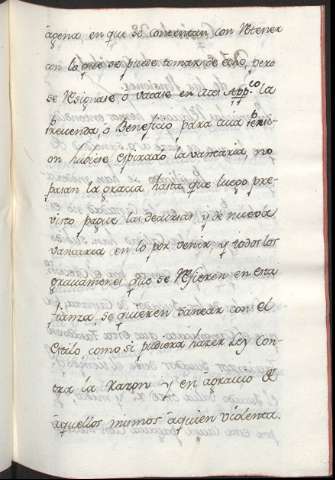 agena en que se contentan con Retener
con lo que se puede tomar de ello, pero
se Resignase ò vacase en Curia Appca la
Prevenda, ò Beneficio para cuia Pensi-
on hubiese espirado la vancaria, no
pasan la gracia hasta que luego pre-
visto pague las decursas y de nueva
vancaria en lo por venir, y todos los
gravamenes que se Refieren en esta
que se quieren sanear con el
estilo como si pudiera hazer Ley Con-
tra la Razon y en agravio de
aquellos mismos aquien violenta.